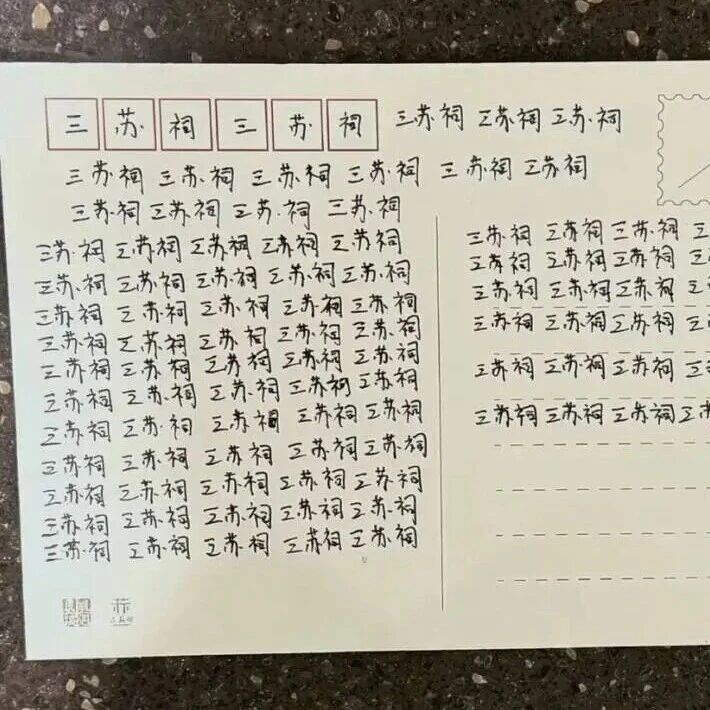 三苏祠三苏祠 三苏祠 三苏祠 三苏祠
三苏祠 三苏祠 三苏祠 三苏祠 三苏祠 三苏祠
三苏祠 三苏祠 三苏祠 三苏祠
三苏祠 三苏祠 三苏祠 三苏祠 三苏祠
三苏祠 三苏祠 三苏祠 三苏祠 三苏祠
三苏祠 三苏祠 三苏祠 三苏祠 三苏祠
三苏祠 三苏祠 三苏祠 三苏祠 三苏祠
三苏祠 三苏祠 三苏祠 三苏祠 三苏祠
三苏祠 三苏祠 三苏祠 三苏祠 三苏祠
三苏祠 三苏祠 三苏祠 三苏祠 三苏祠
三苏祠 三苏祠 三苏祠 三苏祠 三苏祠
三苏祠 三苏祠 三苏祠 三苏祠 三苏祠
三苏祠 三苏祠 三苏祠 三苏祠 三苏祠
三苏祠 三苏祠 三苏祠 三苏祠 三苏祠
三苏祠
三苏祠 三苏祠 三苏祠 三
三苏祠 三苏祠 三苏祠 三
三苏祠 三苏祠 三苏祠 三
三苏祠 三苏祠 三苏祠 三
三苏祠 三苏祠 三苏祠 三
三苏祠 三苏祠 三苏祠 三苏